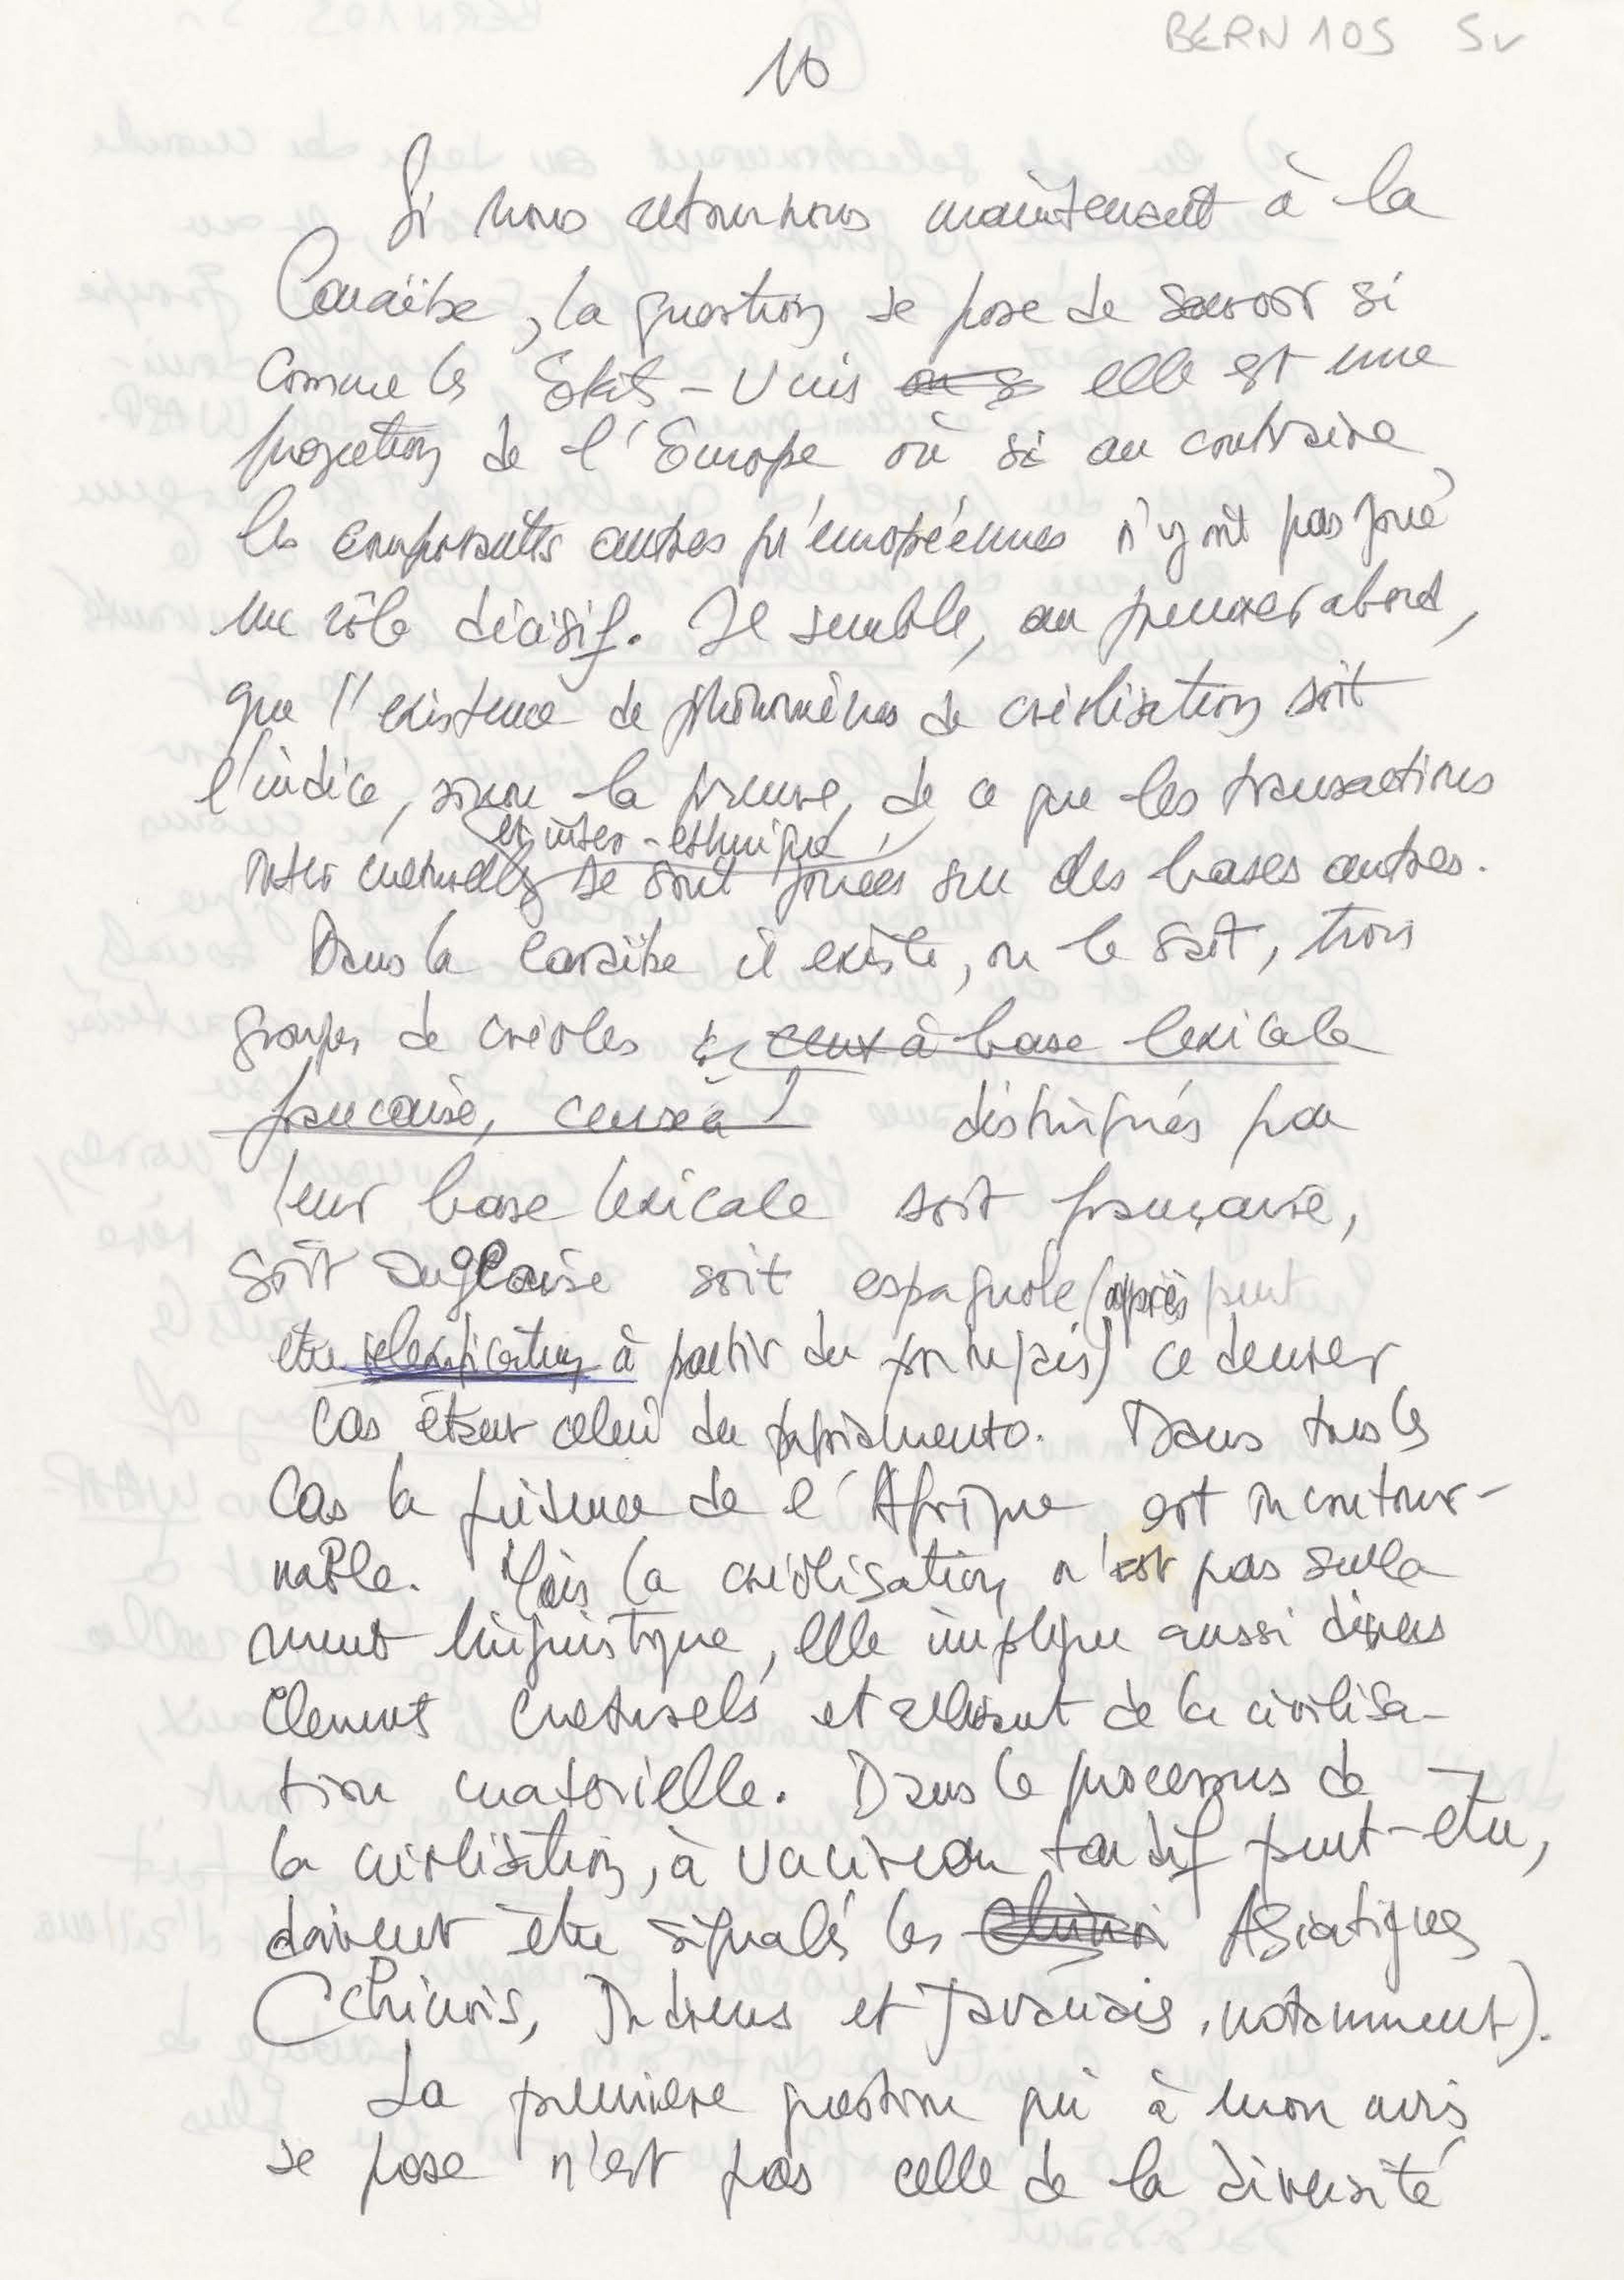 BERN 105 5v
10
Si nous retournons maintenant à la
Caraïbe, la question se pose de savoir si
comme les Etats-Unis elle est une
projection de l'Europe où si au contraire
les composantes autres qu'européennes n'y ont pas joué
un rôle décisif. Il semble, au premier abord,
que l'existence de phénomènes de créolisation soit
l'indice, sinon la preuve, de ce que les transactions
et inter-ethnique
inter culturelles se sont jouées sur des bases autres.
Dans la Caraïbe il existe, on le sait, trois
groupes de créoles ceux à base lexicale
française, ceux à distingués par
leur base lexicale soit française,
soit anglaise soit espagnole (après peut
etre relexification à partir du portugais) ce dernier
cas étant celui du papiamento. Dans tous les
cas la présence de l'Afrique est incontour-
nable. Mais la créolisation n'est pas seule
ment linguistique, elle implique aussi divers
élements culturels et relevant de la civilisa-
tion matérielle. Dans le processus de
la créolisation, à un niveau tardif peut-etre,
doivent être signalés les Chinoi Asiatiques
(Chinois, Indiens et Javanais, notamment).
La première question qui à mon avis
se pose n'est pas celle de la diversité